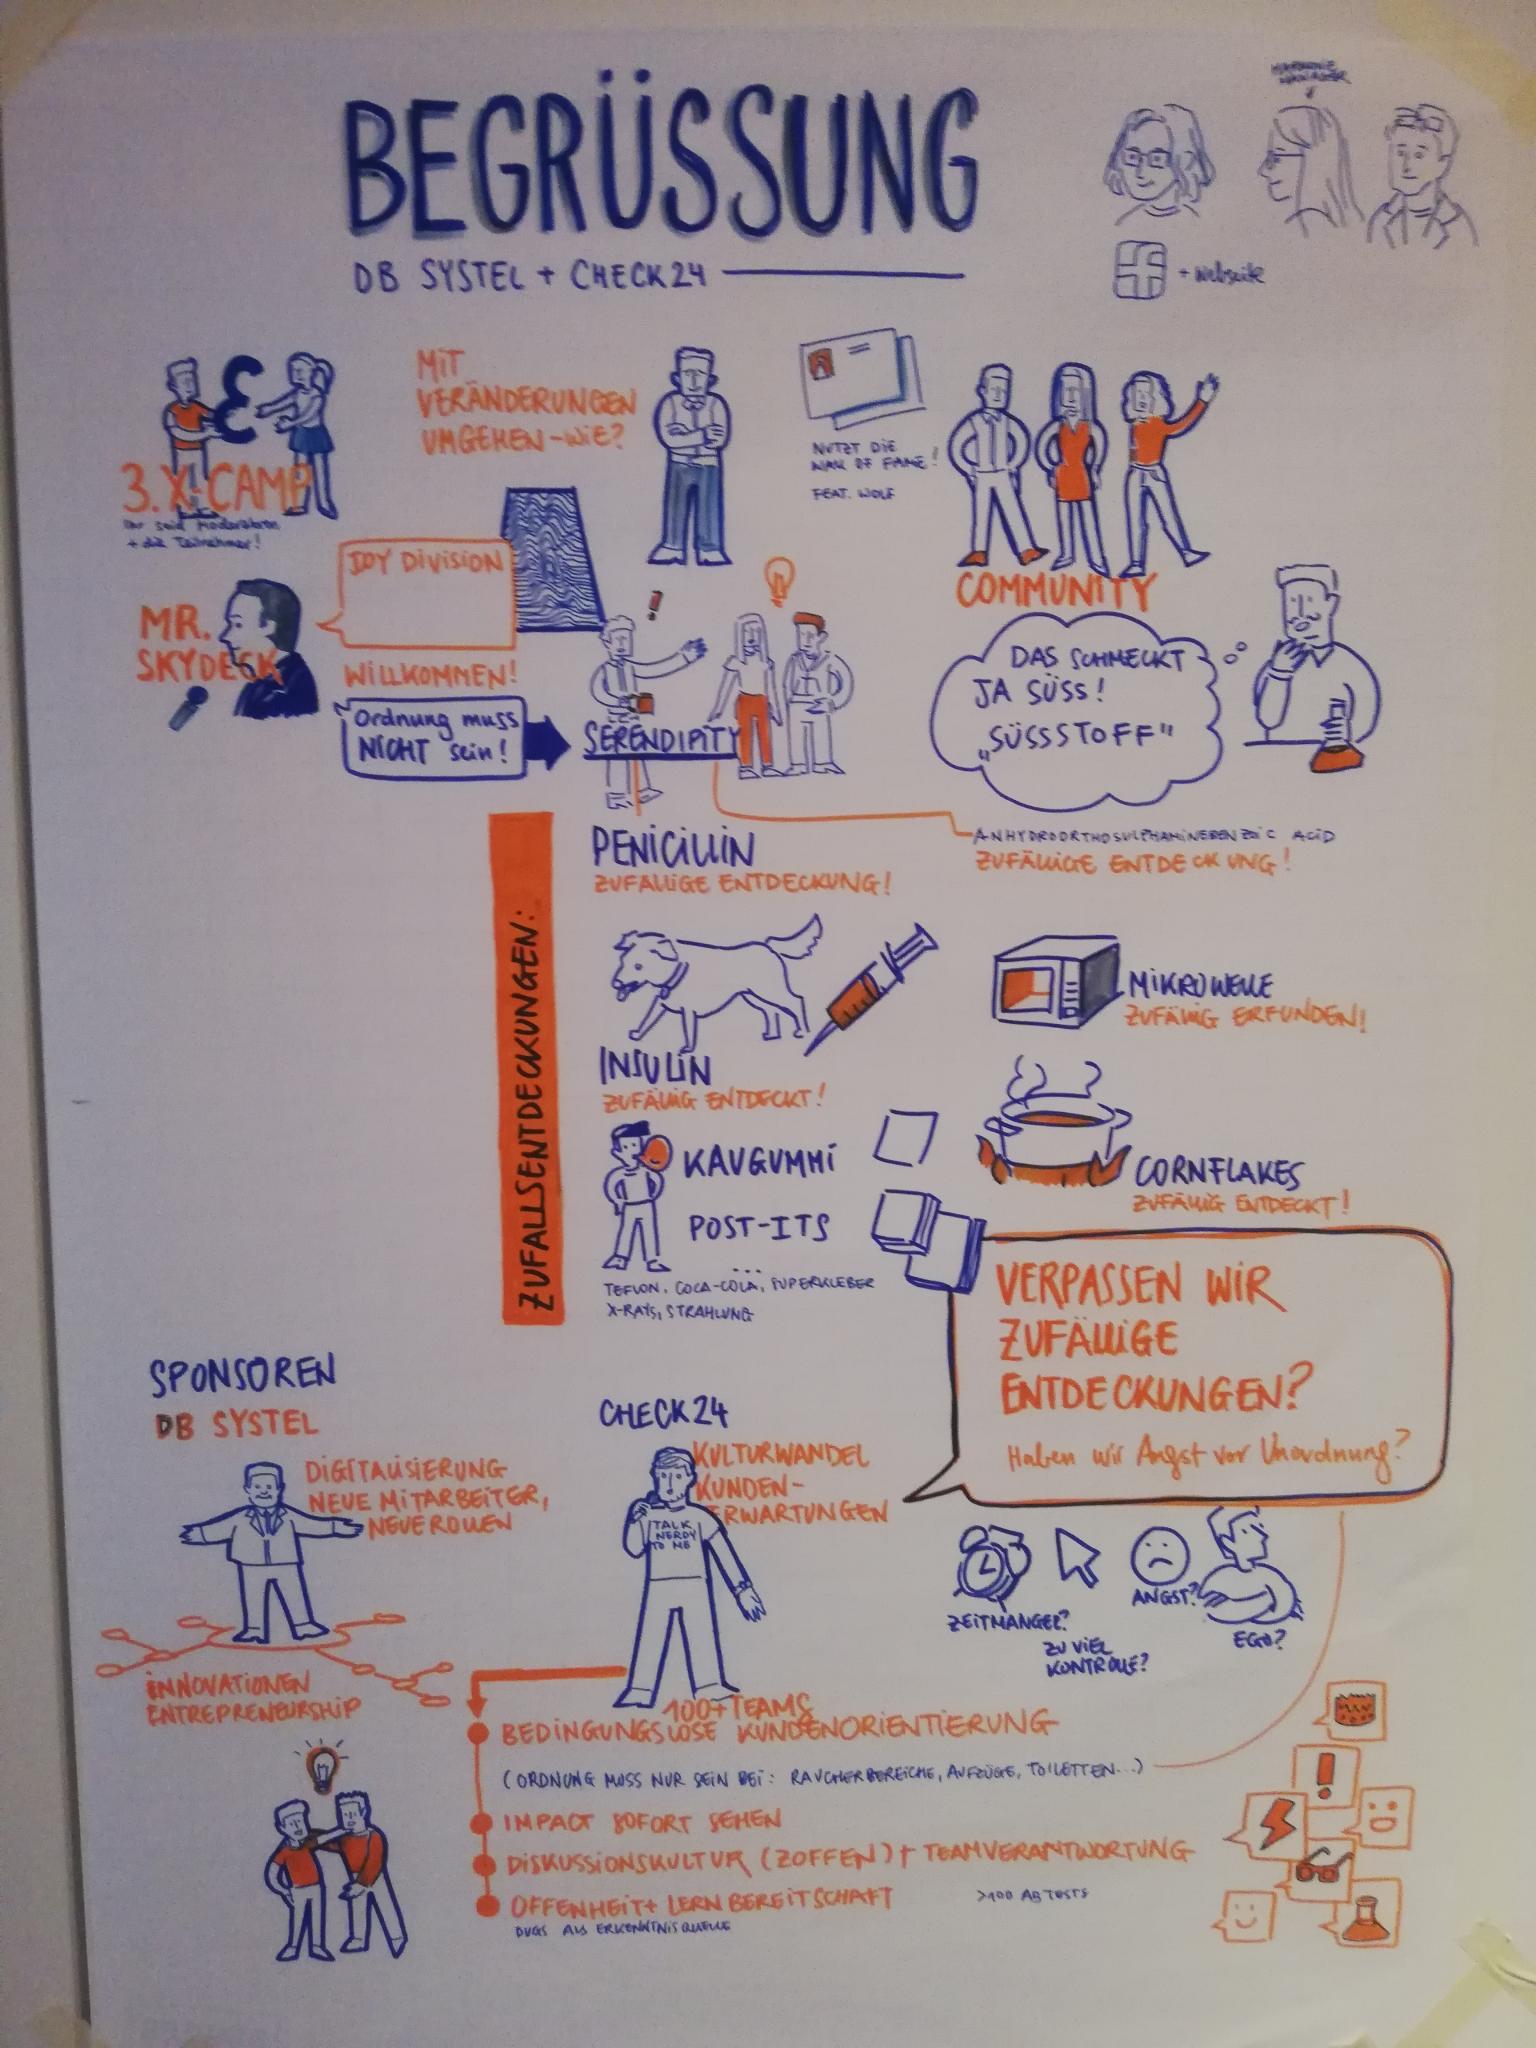 BEGRÜSSUNG
DB SYSTEL + CHECK24
+ Webseite
3. X-CAMP
Ihr seid Moderatoren
+ die Teilnehmer!
MIT
VERÄNDERUNGEN
UMGEHEN - WIE?
NUTZT DIE
WALL OF FAME!
FEAT. WOLF
COMMUNITY
MR.
SKYDECK
JOY DIVISION
WILLKOMMEN!
Ordnung muss
NICHT sein!
SERENDIPITY
DAS SCHMECKT
JA SÜSS!
„SÜSSSTOFF"
ANHYDROORTHOSULPHAMINEBENZOIC ACID
ZUFÄLLIGE ENTDECKUNG!
ZUFALLSENTDECKUNGEN:
PENICILLIN
ZUFÄLLIGE ENTDECKUNG!
INSULIN
ZUFÄLLIG ENTDECKT!
MIKROWELLE
ZUFÄLLIG ERFUNDEN!
KAUGUMMI
POST-ITS
...
TEFLON, COCA-COLA, SUPERKLEBER
X-RAYS, STRAHLUNG
CORNFLAKES
ZUFÄLLIG ENTDECKT!
VERPASSEN WIR
ZUFÄLLIGE
ENTDECKUNGEN?
Haben wir Angst vor Unordnung?
ZEITMANGEL?
ZU VIEL
KONTROLLE?
ANGST?
EGO?
SPONSOREN
DB SYSTEL
DIGITALISIERUNG
NEUE MITARBEITER,
NEUE ROLLEN
INNOVATIONEN
ENTREPRENEURSHIP
CHECK24
KULTURWANDEL
KUNDEN-
ERWARTUNGEN
TALK
NERDY
TO ME
100+ TEAMS
BEDINGUNGSLOSE KUNDENORIENTIERUNG
(ORDNUNG MUSS NUR SEIN BEI: RAUCHERBEREICHE, AUFZÜGE, TOILETTEN...)
IMPACT SOFORT SEHEN
DISKUSSIONSKULTUR (ZOFFEN) + TEAMVERANTWORTUNG
OFFENHEIT + LERNBEREITSCHAFT
>100 AB TESTS
BUGS ALS ERKENNTNISQUELLE